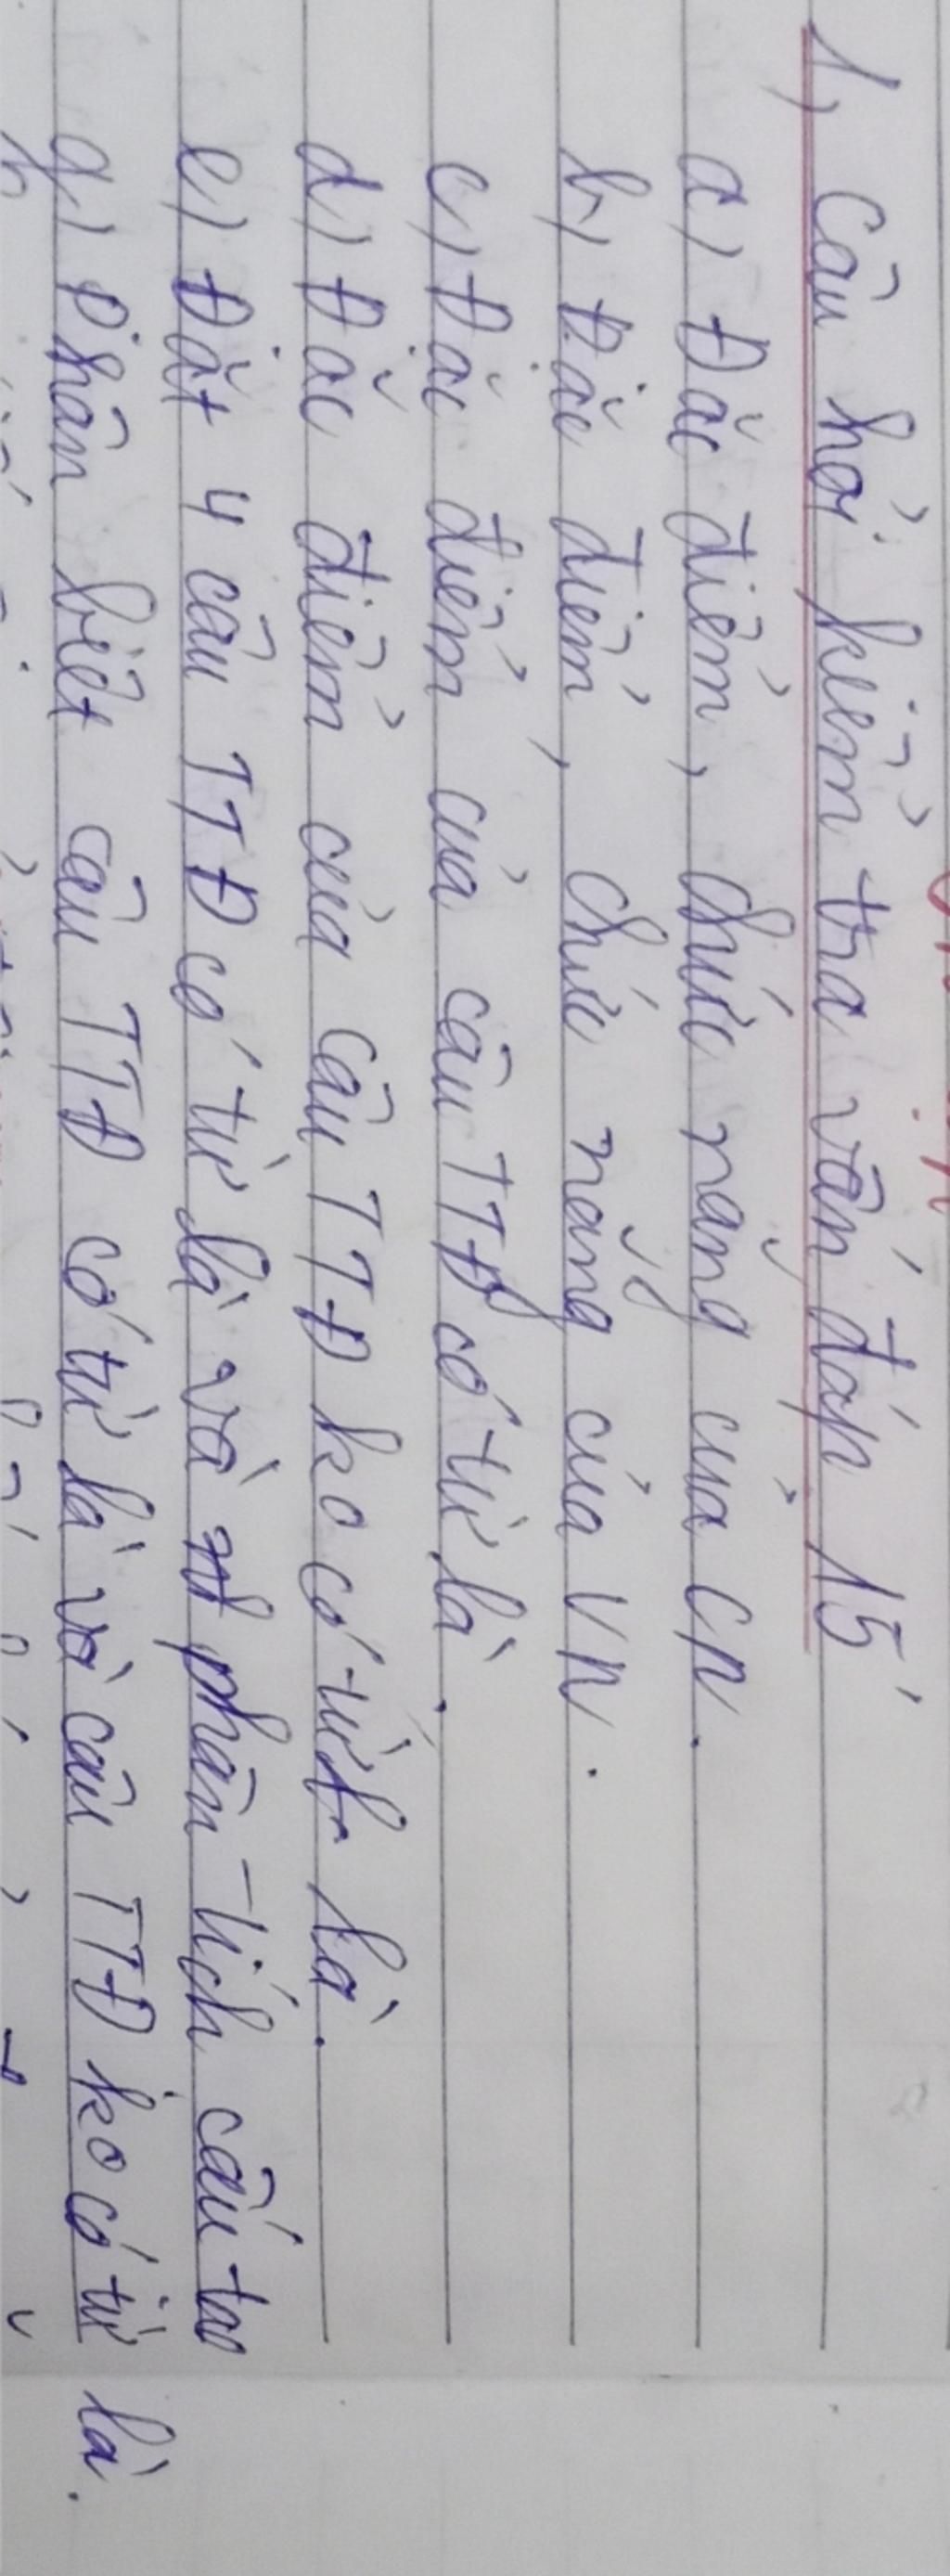 1, Câu hỏi kiểm tra vấn đáp 15'
a) Đặc điểm, chức năng của CN.
b) Đặc điểm, chức năng của VN.
c) Đặc điểm của câu TTĐ có từ là.
d) Đặc điểm của câu TTĐ ko có từ là.
e) Đặt 4 câu TTĐ có từ là và phân tích cấu tạo
g) Phân biệt câu TTĐ có từ là và câu TTĐ ko có từ là.